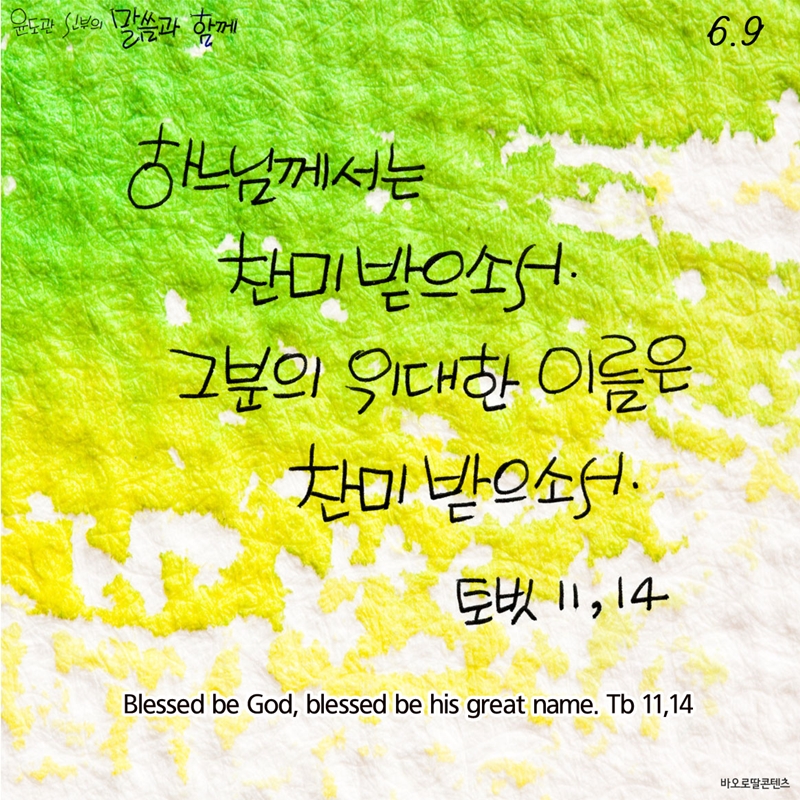 윤도관 신부의 말씀과 함께
6.9
하느님께서는
찬미 받으소서.
그분의 위대한 이름은
찬미 받으소서.
토빗 11,14
Blessed be God, blessed be his great name. Tb 11,14
바오로딸콘텐츠